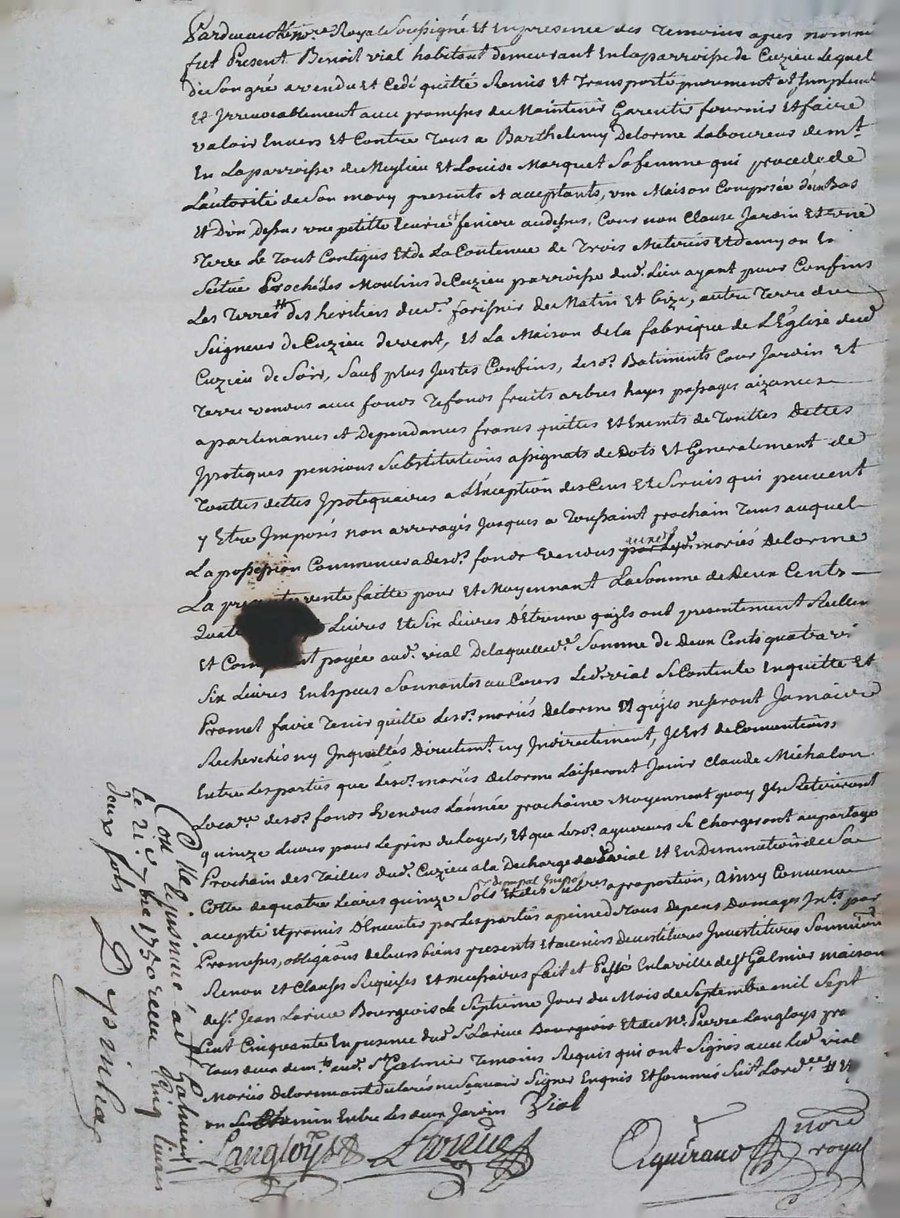 Pardevant le no.re Royal Soussigné et en presence des Temoins apres nommé
fut Present Benoit vial habitant demeurant en la parroisse de Cuzieu Lequel
de Son gré a vendu et Cedé quitté Remis et Transporté purement et Simplem.t
et Irrevocablement avec promesse de Maintenir Garentir fournir et faire
valoir Envers et Contre Tous a Barthelemy Delorme Laboureur dem.t
En La parroisse de Meylieu et Louise Marquet Sa femme qui procede de
L'autorité de Son mary presents et acceptants, une Maison Composée d'un Bas
et D'un Dessus une petite Ecurie et feniere audessus, Cour non Clause Jardin et une
Terre Le Tout Contigus et de La Contenue de Trois Meterées et demy ou en
Située Proche Les Moulins de Cuzieu parroisse dud. Lieu ayant pour Confins
Les Terres # des héritiers du s.r forissier de Matin et bize, autre Terre du
Seigneur de Cuzieu de vent, et La Maison de la fabrique de L'Eglise dud.
Cuzieu de Soir, Sauf plus Justes Confins, Lesd. Batiments Cour Jardin et
Terre vendus avec fonds Tefonds fruits arbres hayes passages aizances
apartenances et Dependances francs quittes et Exempts de Touttes dettes
Ypotiques pensions Substitutions assignats de Dots et Generalement de
Touttes dettes Ypotequaires a L'exception des Cens et Servis qui peuvent
y Etre Imposés non arreragés Jusques a Toussaint prochain Tems auquel
La possession Commencera desd. fonds vendus auxd. mariés Delorme
La presente vente faitte pour et Moyennant La Somme de Deux Cents
Quatre Livres et Six Livres D'Etrenne qu'ils ont presentement Reellem.
et Comptant payée aud. vial De laquelle d. Somme de Deux Cents quatre vt
Six Livres en Especes Sonnantes au Cours Led. vial Se Contente En quitte et
Promet faire Tenir quitte Lesd. mariés Delorme et qu'ils ne Seront Jamais
Recherchés ny Inquiettés Directem.t ny Indirectement, Il Est de Conventions
Entre Les parties que Lesd. mariés Delorme Laisseront Jouir Claude Michalon
Loca.re desd. fonds vendus L'année prochaine Moyennant quoy Ils Retireront
quinze Livres pour Le prix du Loyer, et que Lesd. aquereurs Se Chargeront au partage
Prochain des Tailles dud. Cuzieu a la Decharge dud. vial et En Diminution de Sa
Cotte de quatre Livres quinze Sols de mpal Impost et des Subres a proportion, ainsy Convenu
accepté et promis D'Executer par Les parties a peine de Tous Depens Domages Int.s par
Promesses, obliga[tions] de leurs biens presents et avenirs devestitures Investitures Soumissions
Renon et Clauses Requises et necessaires fait et Passé En la ville de S.t Galmier maison
de S.r Jean Larive Bourgeois Le Septieme Jour du Mois de Septembre mil Sept
Cent Cinquante En presence dud. S.r Larive Bourgeois et de M.e Pierre Langloys pro
Tous deux dem.ts aud. S.t Galmier Temoins Requis qui ont Signés avec Led. vial
Mariés Delorme ont declarés ne Scavoir Signer Enquis et Sommés Suiv.t Lord.ce # Et
un Chemin Entre Les deux Jardins Vial
Langloys Larive Aguiraud no.re royal
Con.lle et insinué à S.t Galmier
Le 21.e 7.bre 1750 receu cinq livres
deux sols Desvinhas